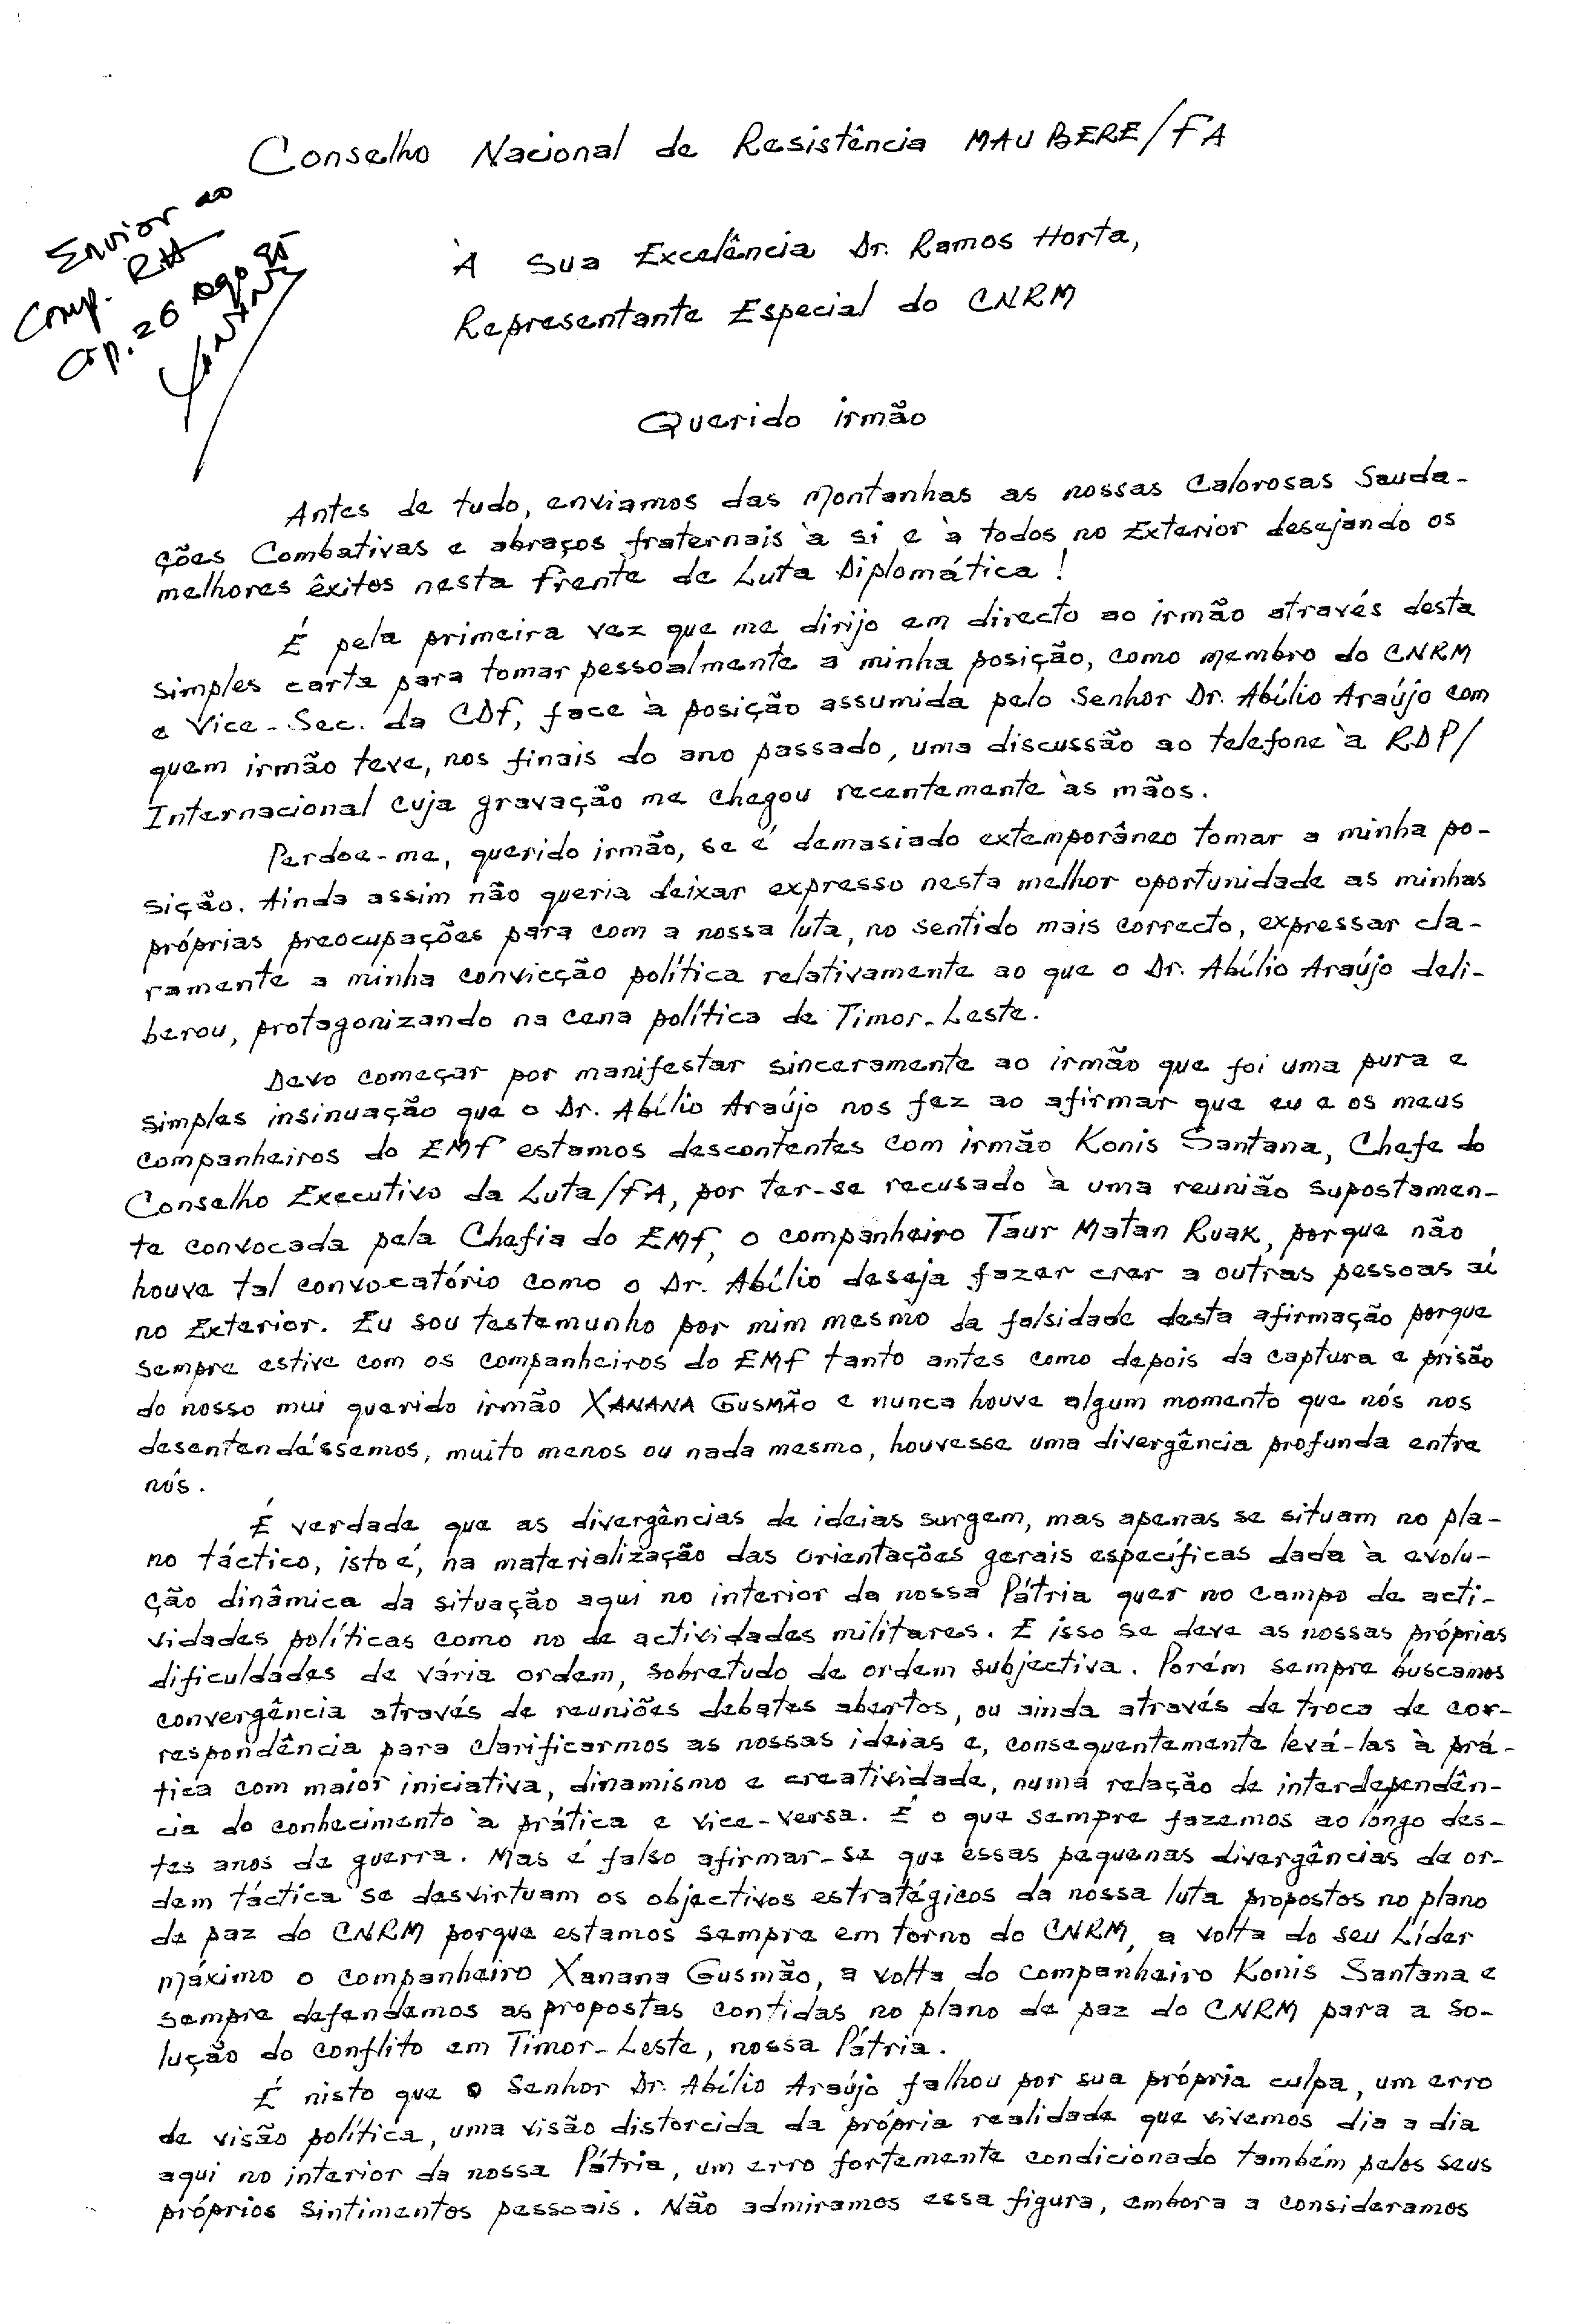 Conselho Nacional de Resistência MAUBERE/FA
Enviar ao
Comp. RH
Cp. 26 Ago 95
À Sua Excelência Dr. Ramos Horta,
Representante Especial do CNRM
Querido irmão
Antes de tudo, enviamos das Montanhas as nossas Calorosas Sauda-
ções Combativas e abraços fraternais à si e à todos no Exterior desejando os
melhores êxitos nesta frente de Luta Diplomática!
É pela primeira vez que me dirijo em directo ao irmão através desta
simples carta para tomar pessoalmente a minha posição, como membro do CNRM
e Vice-Sec. da CDF, face à posição assumida pelo Senhor Dr. Abílio Araújo com
quem irmão teve, nos finais do ano passado, uma discussão ao telefone à RDP/
Internacional cuja gravação me chegou recentemente às mãos.
Perdoe-me, querido irmão, se é demasiado extemporâneo tomar a minha po-
sição. Ainda assim não queria deixar expresso nesta melhor oportunidade as minhas
próprias preocupações para com a nossa luta, no sentido mais correcto, expressar cla-
ramente a minha convicção política relativamente ao que o Dr. Abílio Araújo deli-
berou, protagonizando na cena política de Timor-Leste.
Devo começar por manifestar sinceramente ao irmão que foi uma pura e
simples insinuação que o Dr. Abílio Araújo nos fez ao afirmar que eu e os meus
companheiros do EMF estamos descontentes com irmão Konis Santana, Chefe do
Conselho Executivo da Luta/FA, por ter-se recusado à uma reunião supostamen-
te convocada pela Chefia do EMF, o companheiro Taur Matan Ruak, porque não
houve tal convocatório como o Dr. Abílio deseja fazer crer a outras pessoas aí
no Exterior. Eu sou testemunho por mim mesmo da falsidade desta afirmação porque
sempre estive com os companheiros do EMF tanto antes como depois da captura e prisão
do nosso mui querido irmão XANANA GUSMÃO e nunca houve algum momento que nós nos
desentendêssemos, muito menos ou nada mesmo, houvesse uma divergência profunda entre
nós.
É verdade que as divergências de ideias surgem, mas apenas se situam no pla-
no táctico, isto é, na materialização das orientações gerais específicas dada à evolu-
ção dinâmica da situação aqui no interior da nossa Pátria quer no campo de acti-
vidades políticas como no de actividades militares. E isso se deve as nossas próprias
dificuldades de vária ordem, sobretudo de ordem subjectiva. Porém sempre buscamos
convergência através de reuniões debates abertos, ou ainda através de troca de cor-
respondência para clarificarmos as nossas ideias e, consequentemente levá-las à prá-
tica com maior iniciativa, dinamismo e creatividade, numa relação de interdependên-
cia do conhecimento à prática e vice-versa. É o que sempre fazemos ao longo des-
tes anos de guerra. Mas é falso afirmar-se que essas pequenas divergências de or-
dem táctica se desvirtuam os objectivos estratégicos da nossa luta propostos no plano
de paz do CNRM porque estamos sempre em torno do CNRM, a volta do seu Líder
Máximo o companheiro Xanana Gusmão, a volta do companheiro Konis Santana e
sempre defendemos as propostas contidas no plano de paz do CNRM para a so-
lução do conflito em Timor-Leste, nossa Pátria.
É nisto que o Senhor Dr. Abílio Araújo falhou por sua própria culpa, um erro
de visão política, uma visão distorcida da própria realidade que vivemos dia a dia
aqui no interior da nossa Pátria, um erro fortemente condicionado também pelos seus
próprios sintimentos pessoais. Não admiramos essa figura, embora a consideramos